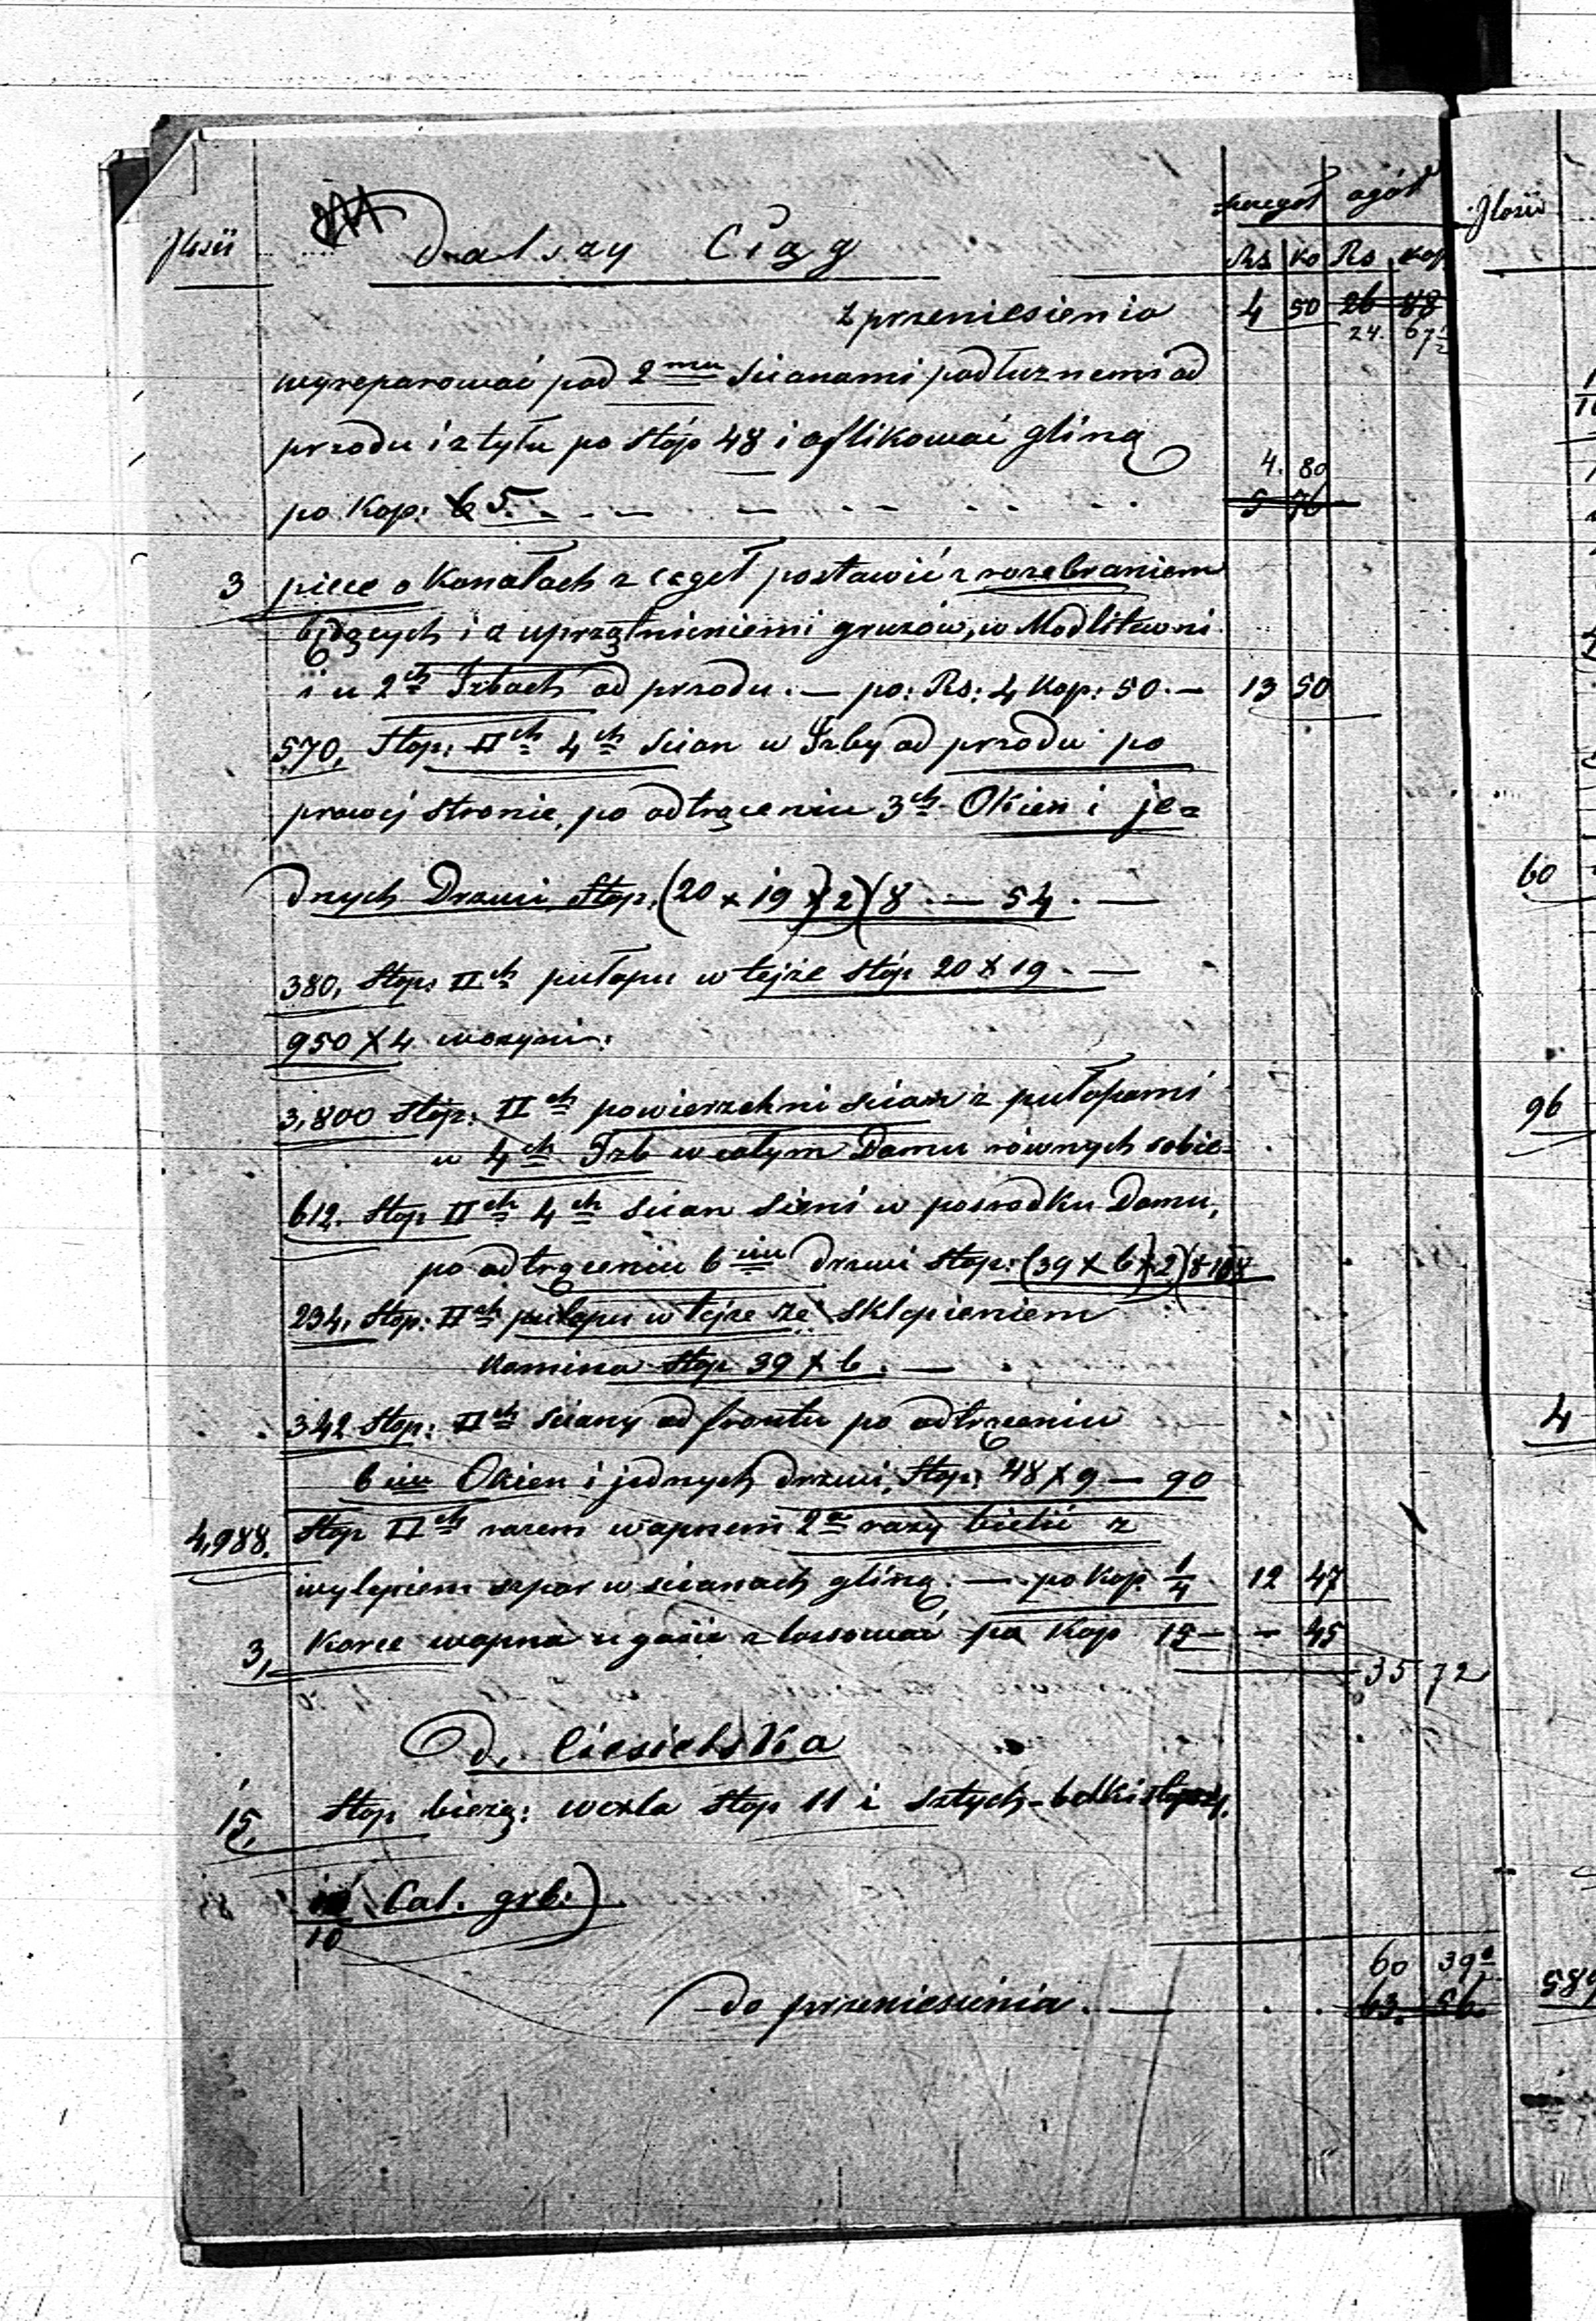 szczegół ogół
Ilość Dalszy Ciąg
Rs Ko Rs Kop
z przeniesienia 4 50 26 88
24. 67½
wyreparować pod 2ma scianami podłużnemi od
przodu i z tyłu po stóp 48 i oflikować gliną
4. 80
po Kop: 6 5. 5 76
3 piece o Kanałach z cegeł postawić z rozebraniem
będących i z uprzątnieniemi gruzów, w Modlitewni
i w 2ch Izbach od przodu. — po: Rs: 4 Kop: 50. — 13 50
570, Stop: IIch 4ch scian w Izby od przodu po
prawej stronie, po odtrąceniu 3ch Okien i je=
dnych Drzwi Stop. (20 × 19 × 2)(8 . — 54 . —
380, Stop: IIch pułapu w tejże stóp 20 × 19. —
950 × 4 wczyni:
3,800 Stop: IIch powierzchni scian z pułapami
w 4ch Izb w całym Domu równych sobie
612. Stop IIch 4ch scian Sieni w pośrodku Domu,
po odtrąceniu 6iu drzwi Stop: (39 × 6 × 2)(8 108
234, Stop: IIch pułapu w tejże ze Sklepieniem
Komina Stop 39 × 6. —
342 Stop: IIch sciany od frontu po odtrąceniu
6iu Okien i jednych drzwi, Stop: 48 × 9 — 90
4,988. Stop IIch razem wapnem 2a razy bielić z
wylepiem szpar w scianach gliną: — po Kop. ¼ 12 47
3, Korce wapna ugasić zlasować po Kop 15 — - 45
35 72
d. Ciesielska
15, Stop bieżą: wexla Stop 11 i sztych-belki
10 Cal. grb:)
10
60 39½
do przeniesienia. — 63. 56
Ilość
60
96
4
589